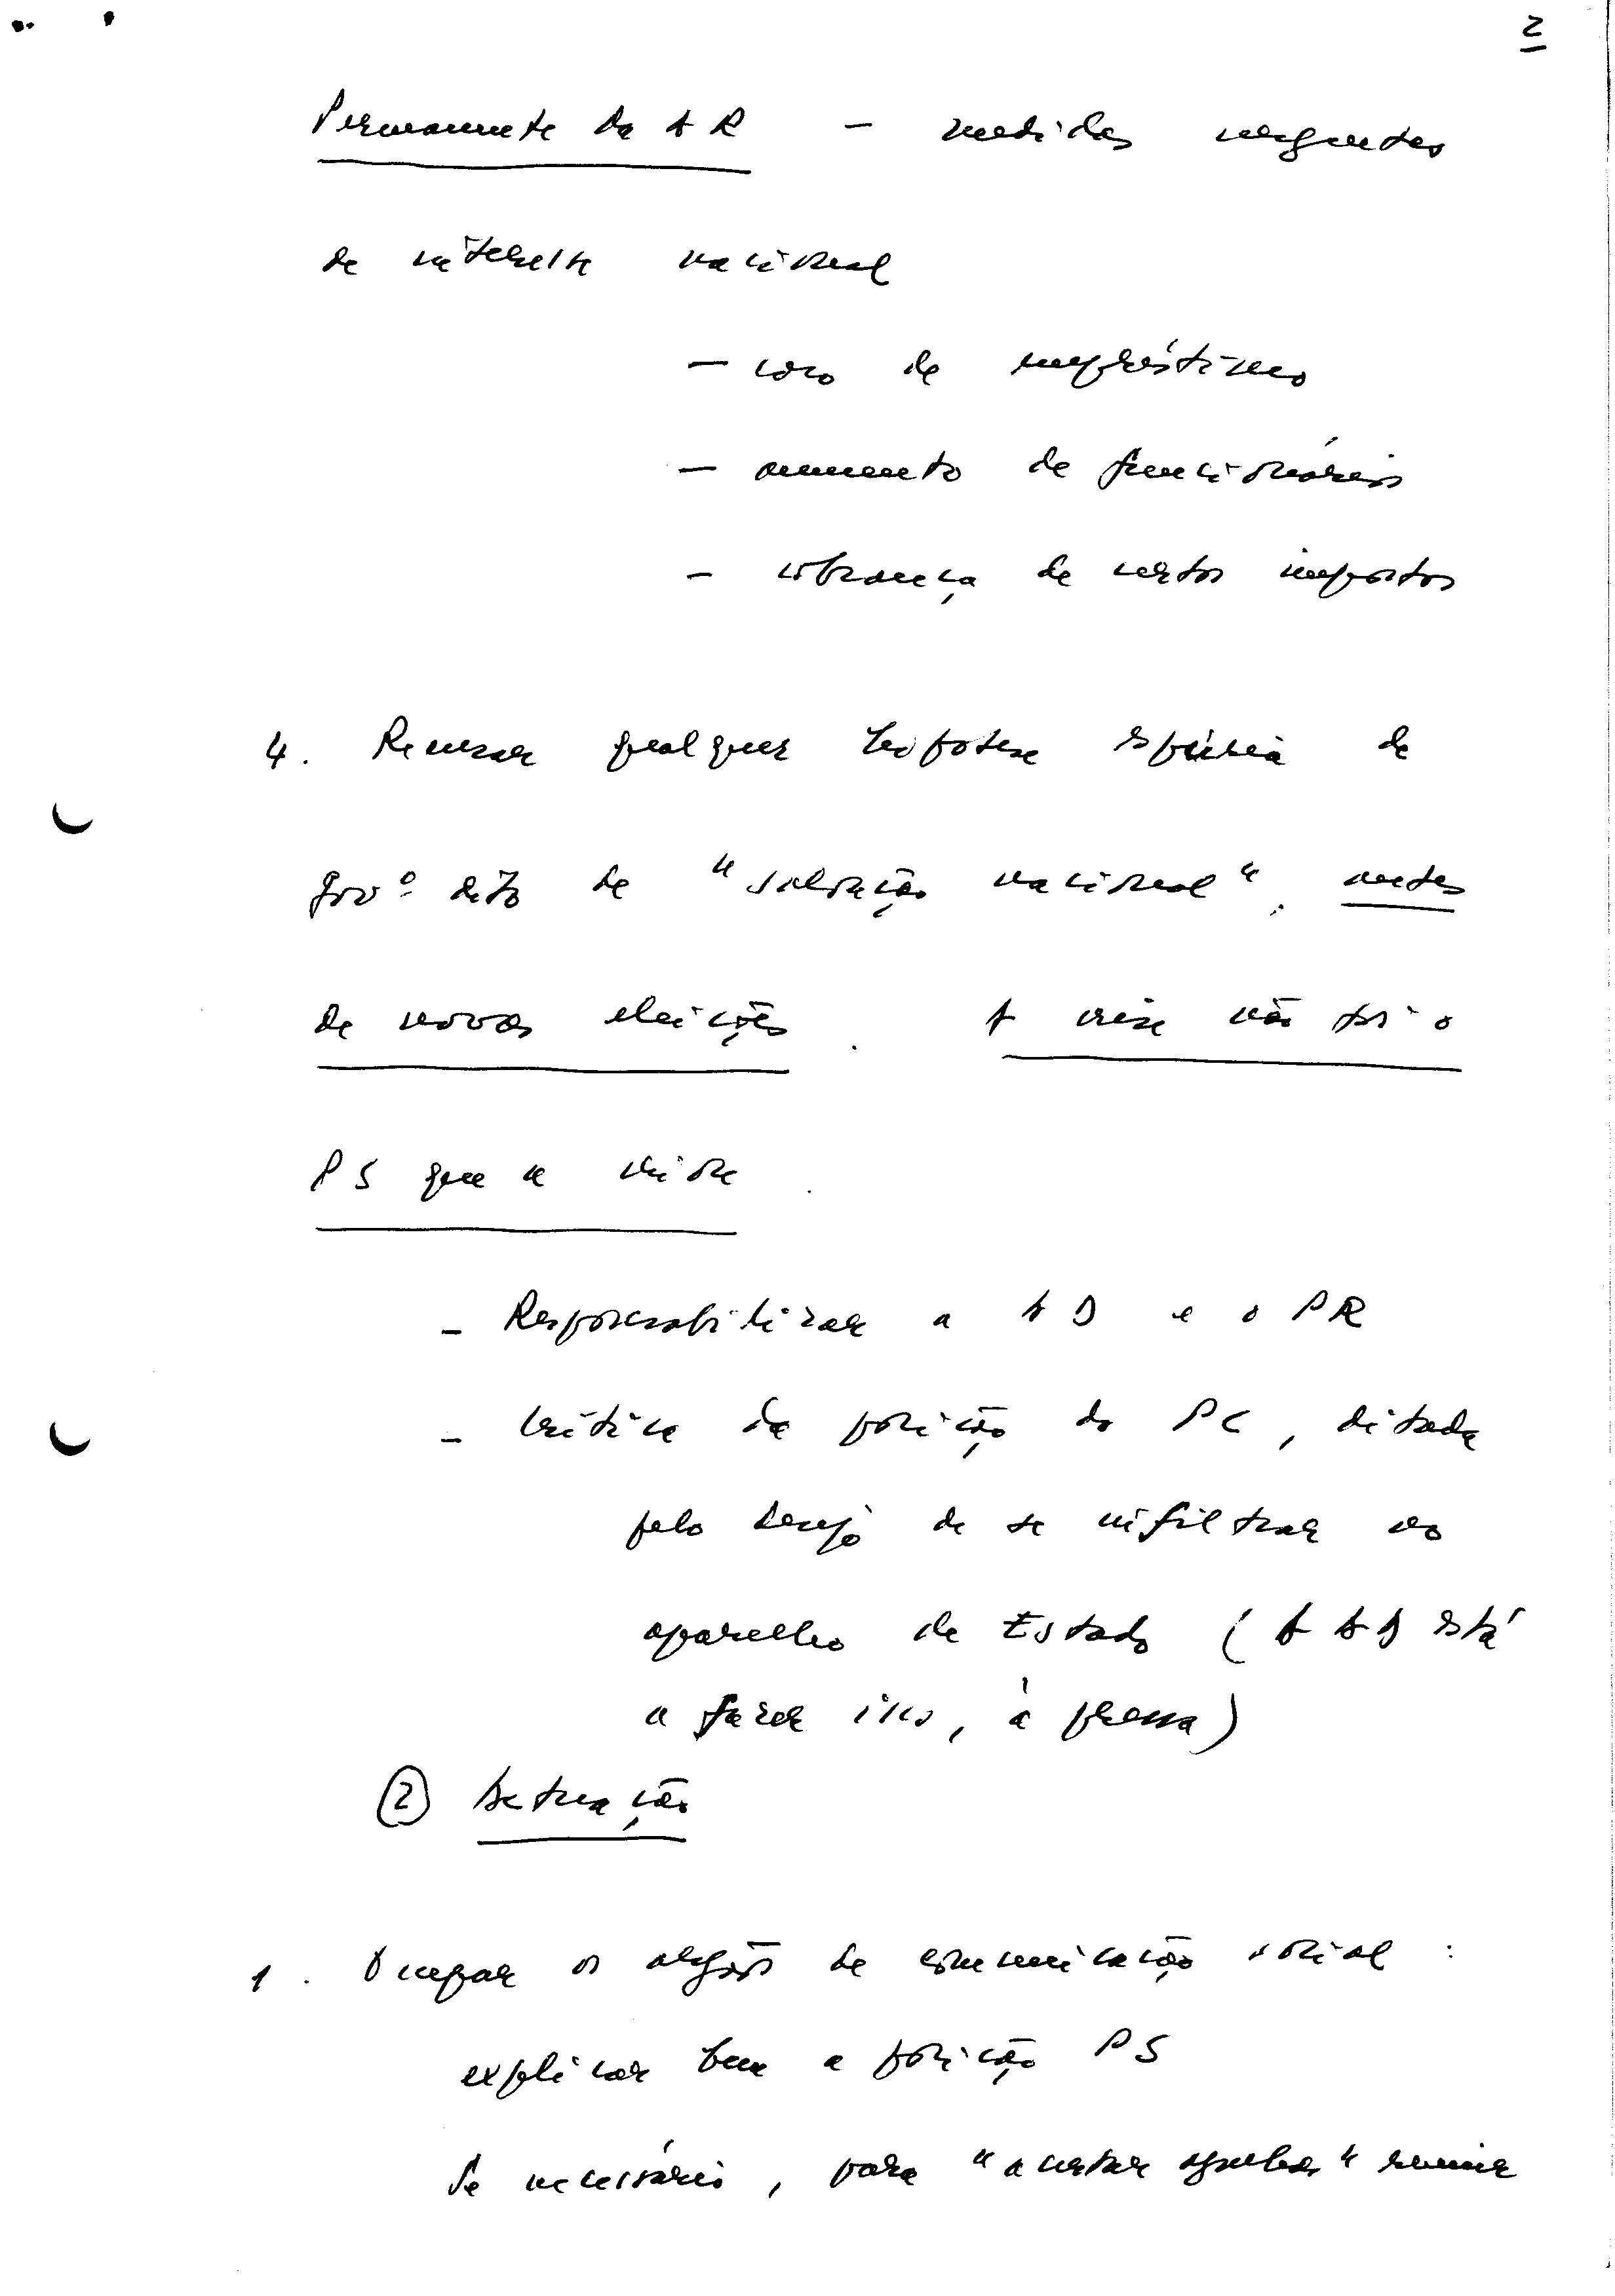 2
Permanente da AR — medidas urgentes
de interesse nacional
— caso de empréstimo
— aumento de funcionários
— cobrança de certos impostos
4. Recusar qualquer hipótese espúria de
govº dito de "salvação nacional", antes
de novas eleições. A crise não foi o
PS que a abriu.
— Responsabilizar a AD e o PR
— Crítica da posição do PC, ditada
pelo desejo de se infiltrar no
aparelho de Estado (A AD está
a fazer isso, à pressa)
② Actuação
1. Ocupar os orgãos de comunicação social :
explicar bem a posição PS
Se necessário, para "acertar agulhas" reunir